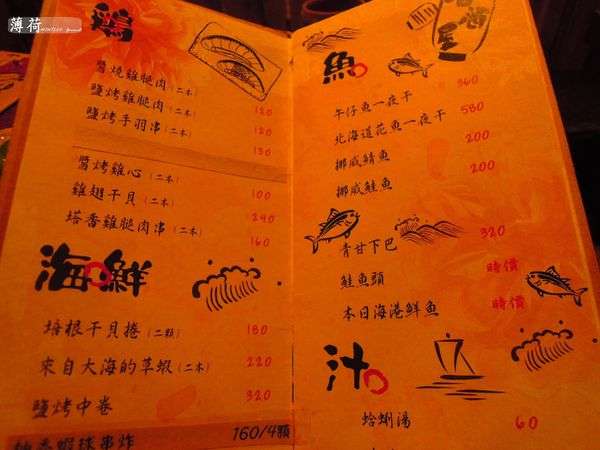 薄荷
鶏
醬燒雞腿肉(二本) 120
鹽烤雞腿肉(二本) 120
鹽烤手羽串(二本) 130
醬烤雞心(二本) 100
雞翅干貝(二本) 240
塔香雞腿肉串(二本) 160
海鮮
培根干貝捲(二顆) 180
來自大海的草蝦(二本) 220
鹽烤中卷 320
蝦球串炸 160/4顆
魚
午仔魚一夜干 360
北海道花魚一夜干 580
挪威鯖魚 200
挪威鮭魚 200
青甘下巴 320
鮭魚頭 時價
本日海港鮮魚 時價
汁
蛤蜊湯 60